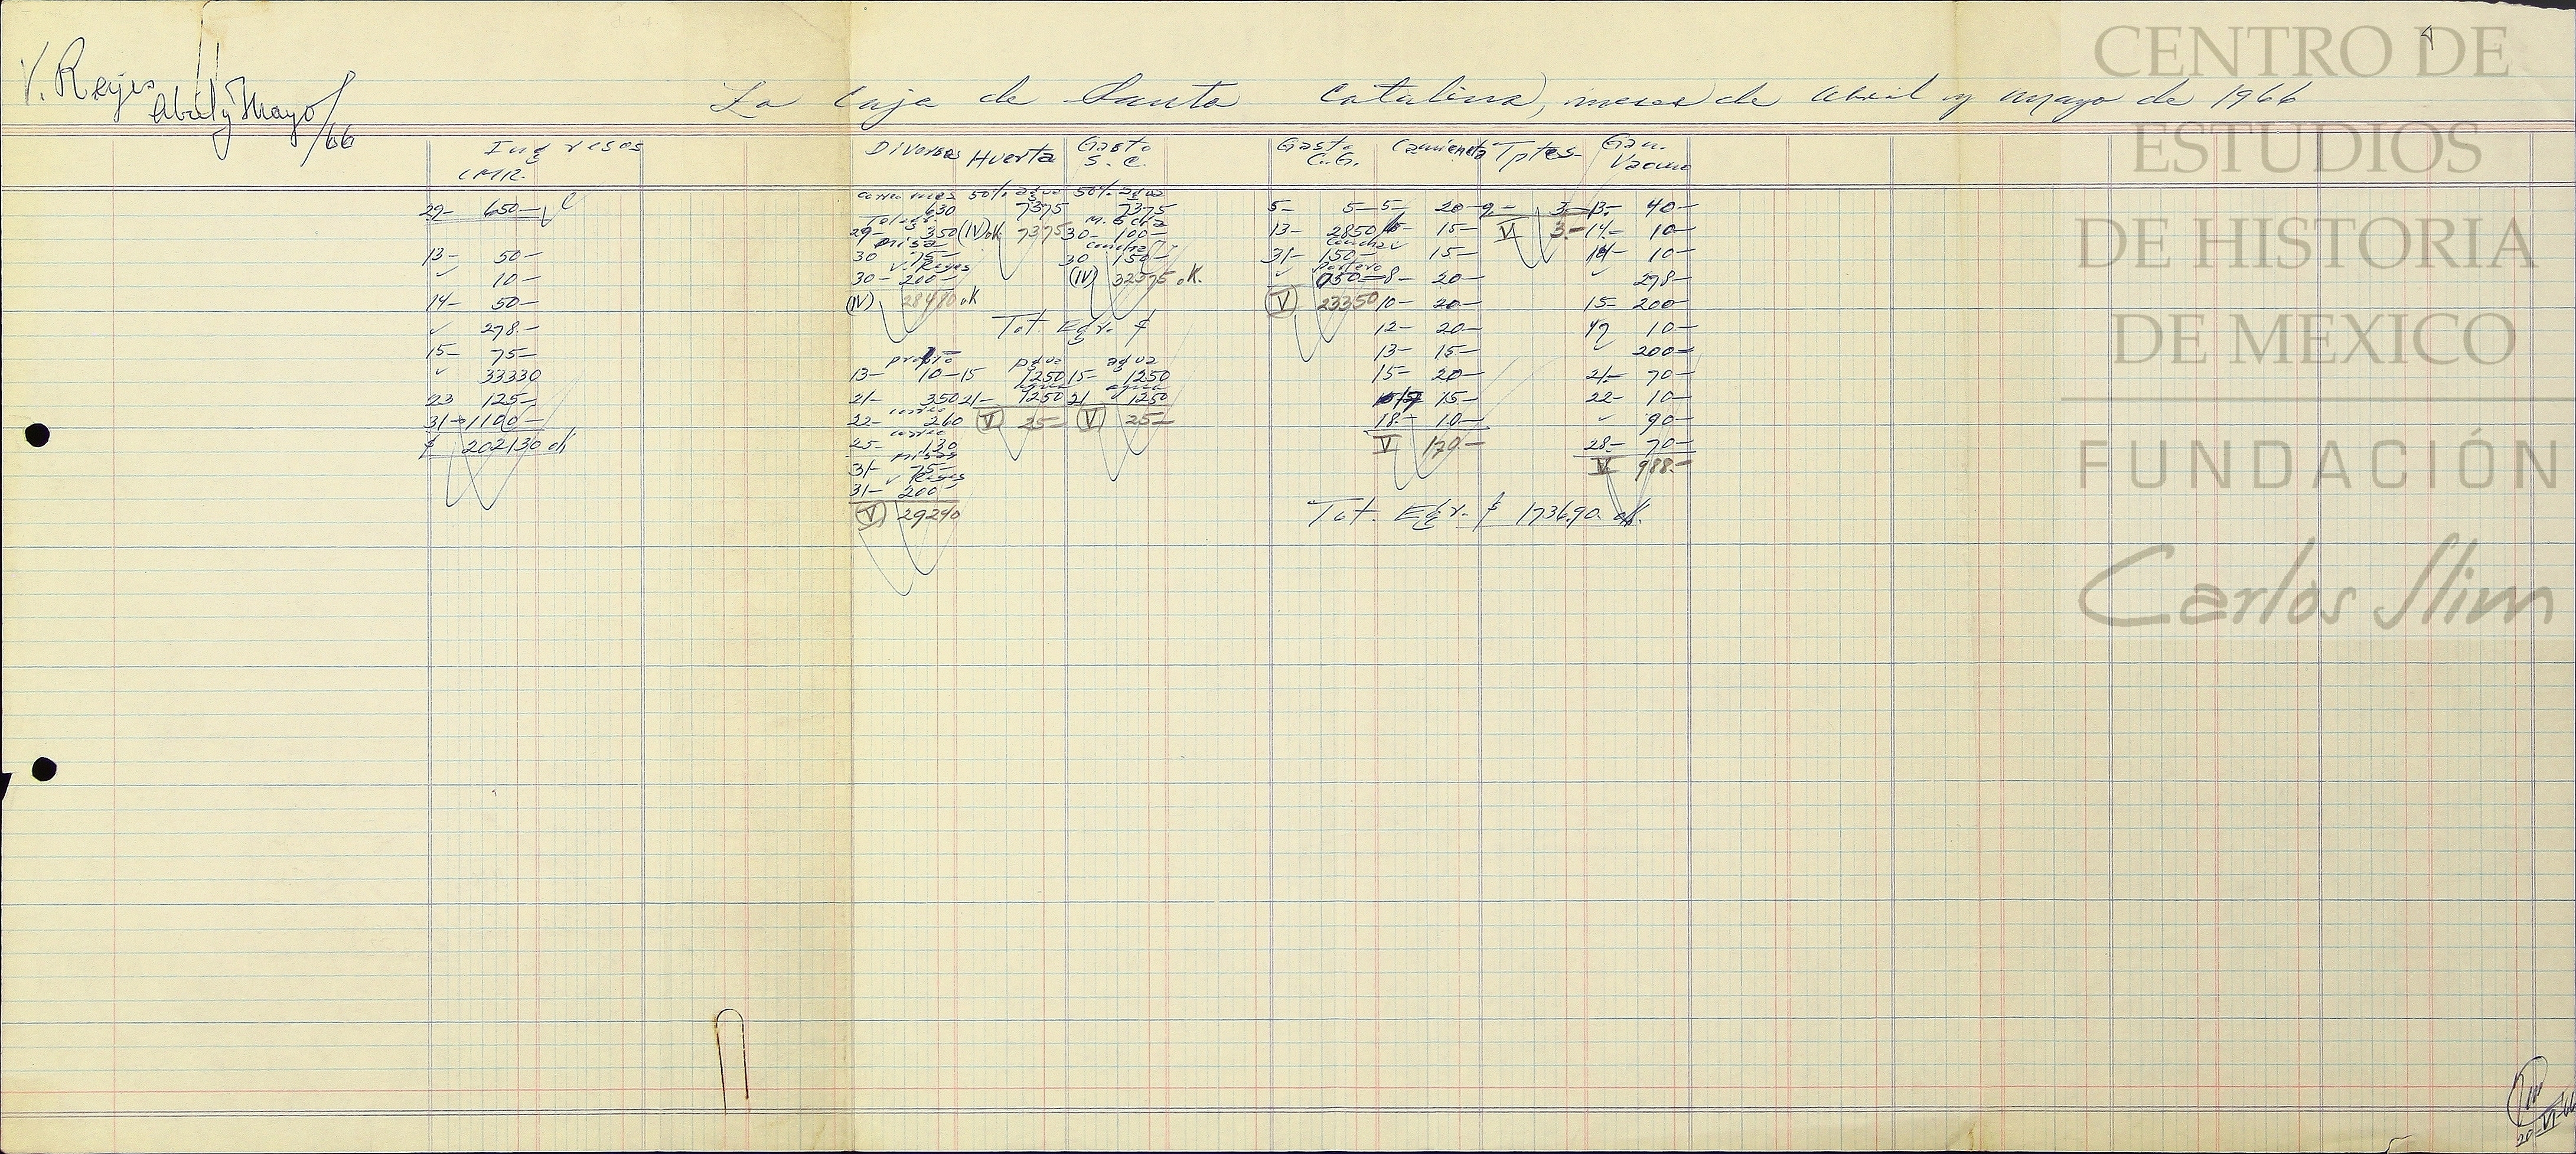 V. Reyes
Abril y Mayo/66
La Caja de Santa Catalina, meses de abril y mayo de 1966
Ingresos
CMR.
Diversos Huerta Gasto S. C.
Gasto C.G. Camioneta Tptes. Gan. Vacuno
29- 650-
13- 50-
10-
14- 50-
278.-
15- 75-
33330
23 125-
31- 1100-
$ 202130 ok
correo mes 50% agua 50% agua
630 7375 7375
29- 350 (IV) ok 7375 30- 100-
misa concha
30 75- 30 150-
V. Reyes
30- 200- (IV) 32375 ok.
(IV) 28480 ok
Tot. Egr. $
agua agua
13- 10- 15 1250 15- 1250
agua agua
21- 350 21- 1250 21 1250
correo
22- 260 (V) 25- (V) 25-
correo
25- 130
misas
31- 75-
V Reyes
31- 200-
(V) 29290
5- 5-
13- 2850
concha
31- 150-
portero
050-
(V) 23350
5- 20-
15-
15-
8- 20-
10- 20-
12- 20-
13- 15-
15- 20-
15-
18- 10-
V 170.-
9.- 3.-
V 3.-
13- 40-
14- 10-
14- 10-
298-
15- 200-
10-
200-
21- 70-
22- 10-
90-
28- 70-
V 988.-
Tot. Egr. $ 1736.90 ok.
20-VI-66
CENTRO DE
ESTUDIOS
DE HISTORIA
DE MEXICO
FUNDACIÓN
Carlos Slim